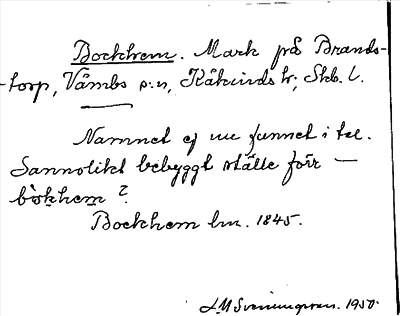 Bockhem. Mark på Brands-
-torp, Våmbs s:n, Kåkinds hd; Skb. l.
Namnet ej nu funnet i tal.
Sannolikt bebyggt ställe förr —
bòkhem ?
Bockhem lm. 1845.
J.M Svenningsson. 1950.